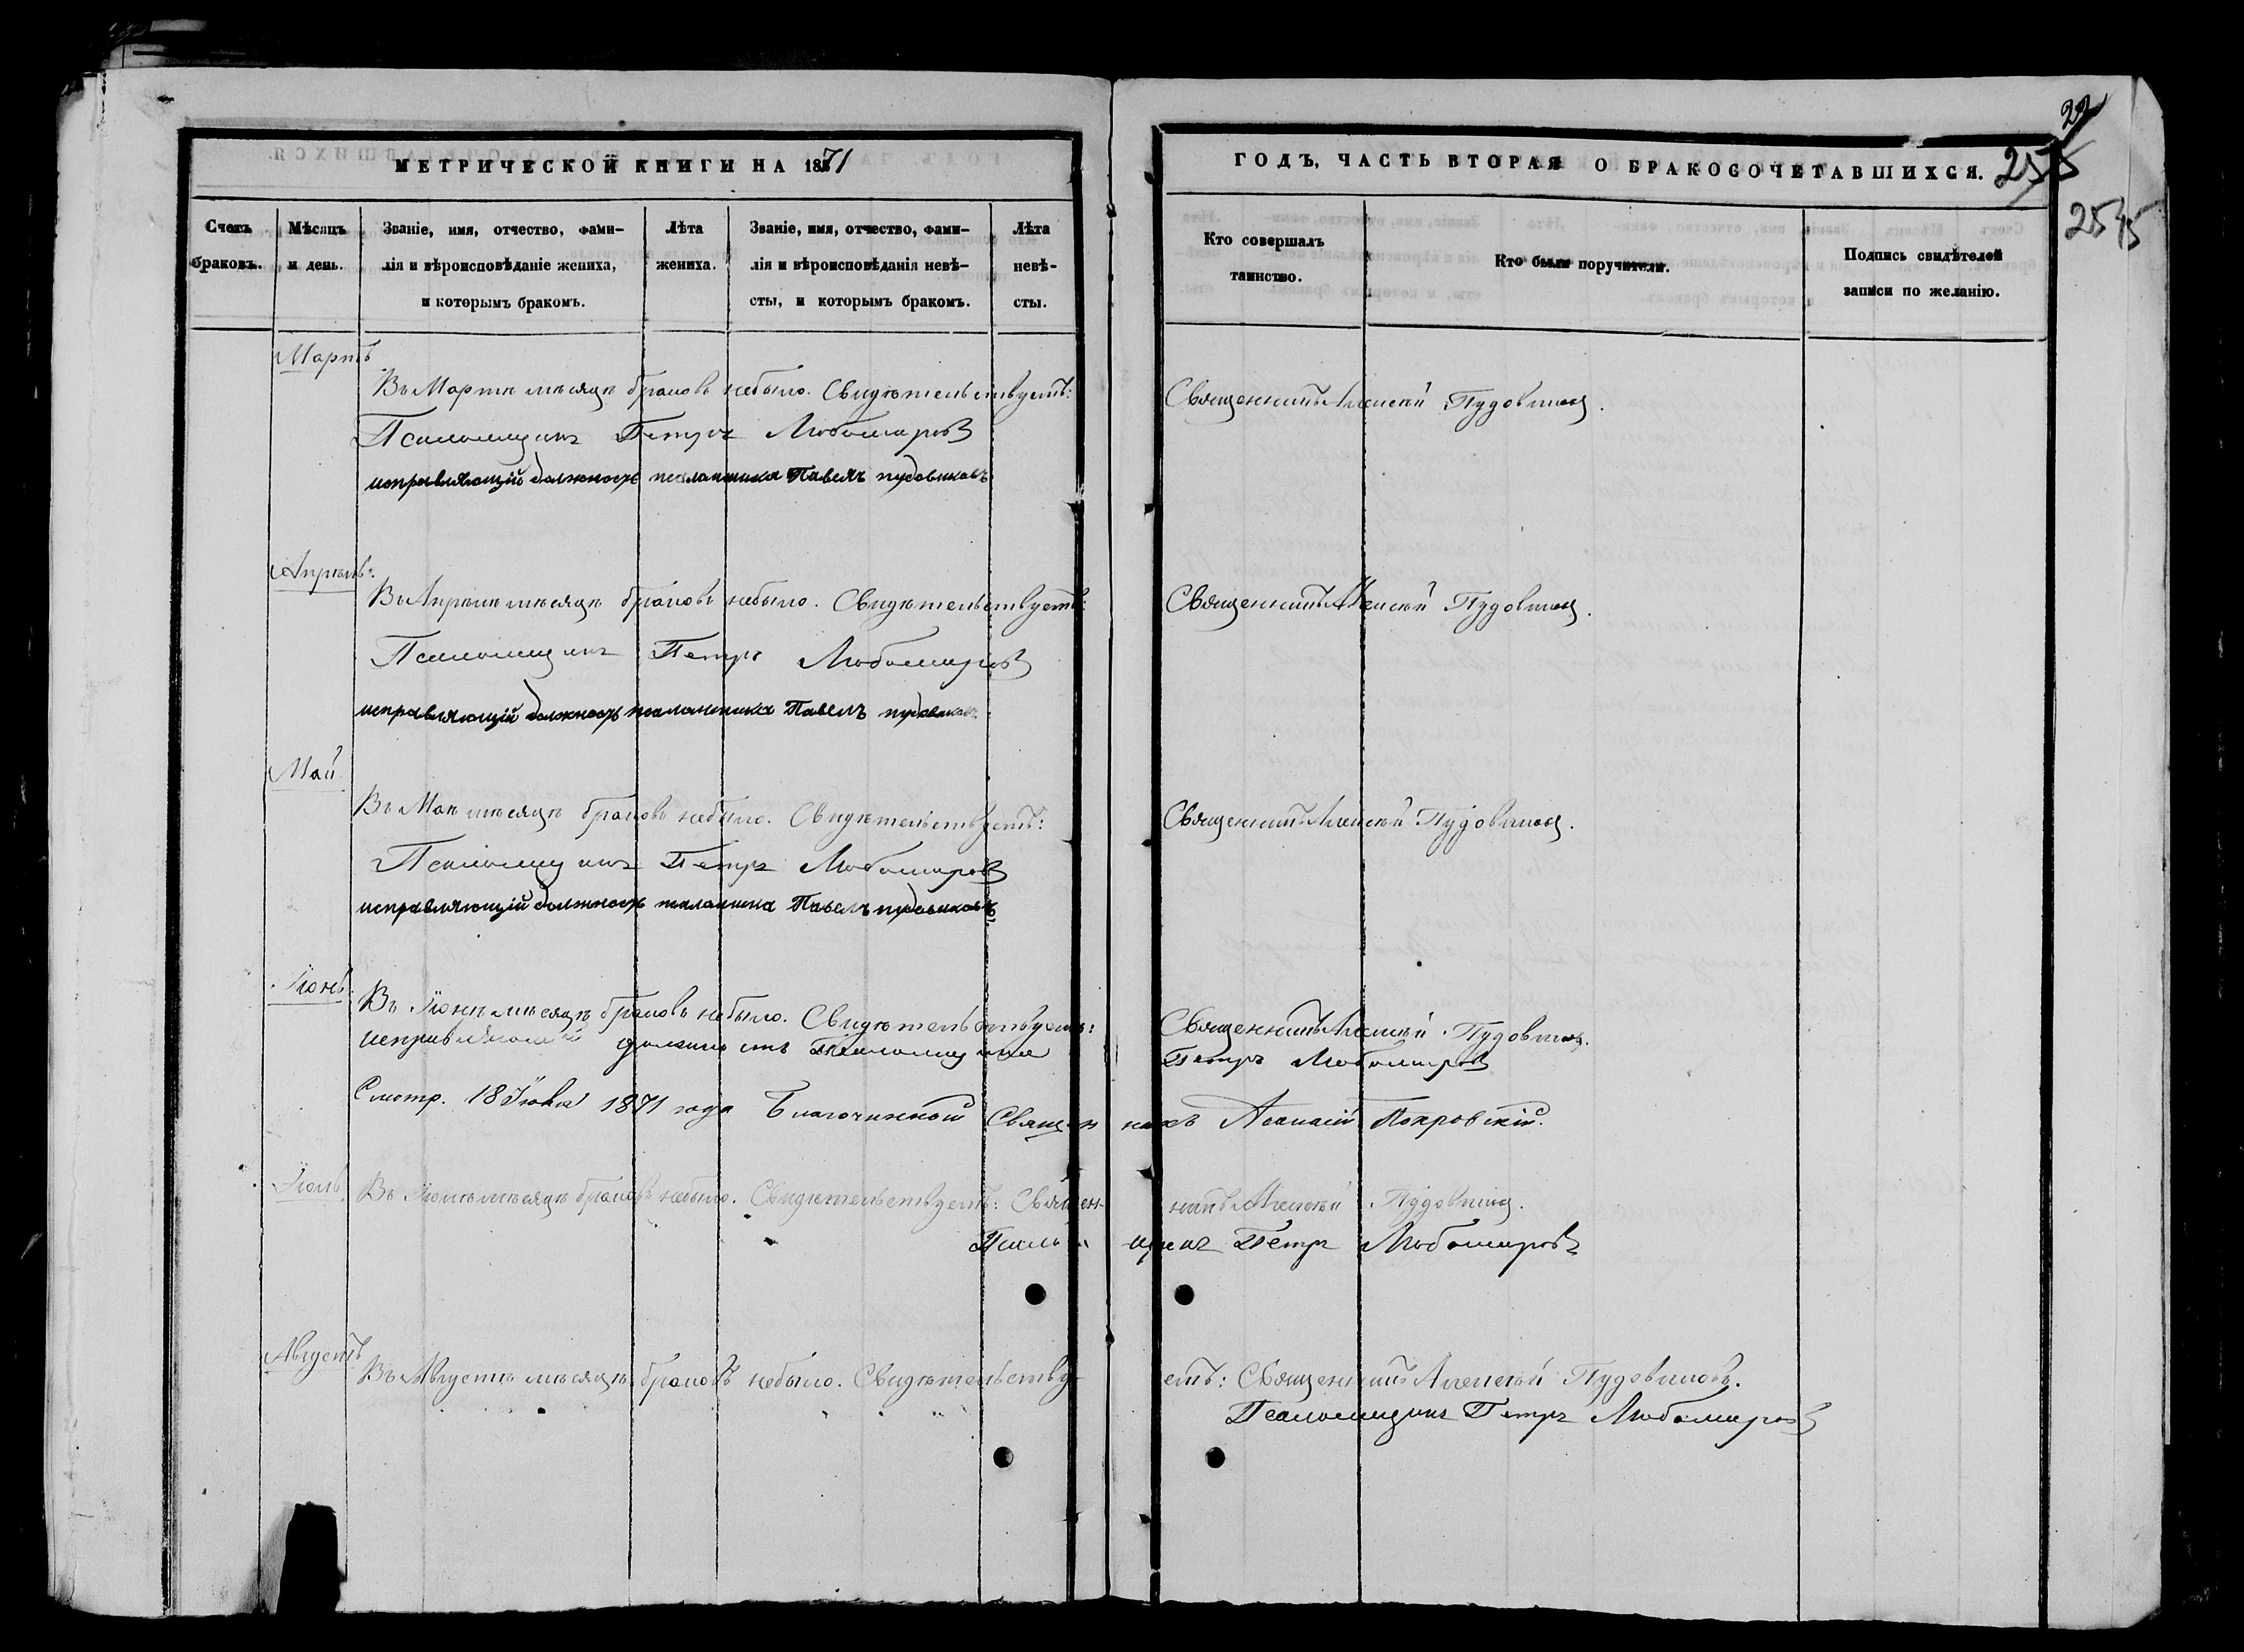 22
255
255
МЕТРИЧЕСКОЙ КНИГИ НА 1871
ГОДЪ, ЧАСТЬ ВТОРАЯ О БРАКОСОЧЕТАВШИХСЯ.
Счетъ браковъ.
Мѣсяцъ и день.
Званіе, имя, отчество, фами-
лія и вѣроисповѣданіе жениха,
и которымъ бракомъ.
Лѣта жениха.
Званіе, имя, отчество, фами-
лія и вѣроисповѣданія невѣ-
сты, и которымъ бракомъ.
Лѣта невѣ-
сты.
Кто совершалъ
таинство.
Кто были поручители.
Подпись свидѣтелей
записи по желанію.
Мартъ
Въ Мартѣ мѣсяцѣ браковъ небыло. Свидѣтельствуетъ: Священникъ Алексѣй Пудовиковъ.
Псаломщикъ Петръ Любомировъ
исправляющій должность псаломщика Павелъ пудовиковъ
Апрѣль.
Въ Апрѣлѣ мѣсяцѣ браковъ небыло. Свидѣтельствуетъ: Священникъ Алексѣй Пудовиковъ.
Псаломщикъ Петръ Любомировъ
исправляющій должность псаломщика Павелъ пудовиковъ
Май
Въ Маѣ мѣсяцѣ браковъ небыло. Свидѣтельствуетъ: Священникъ Алексѣй Пудовиковъ.
Псаломщикъ Петръ Любомировъ
исправляющій должность псаломщика Павелъ пудовиковъ
Іюнь.
Въ Іюнѣ мѣсяцѣ браковъ небыло. Свидѣтельствуетъ: Священникъ Алексѣй Пудовиковъ.
исправляющій должность Псаломщика Петръ Любомировъ
Смотр. 18 Іюня 1871 года Благочинный Священникъ Аѳанасій Покровскій.
Іюль
Въ Іюлѣ мѣсяцѣ браковъ небыло. Свидѣтельствуетъ: Священ-никъ Алексѣй Пудовиковъ.
Псаломщикъ Петръ Любомировъ
Августъ
Въ Августѣ мѣсяцѣ браковъ небыло. Свидѣтельству-етъ: Священникъ Алексѣй Пудовиковъ.
Псаломщикъ Петръ Любомировъ